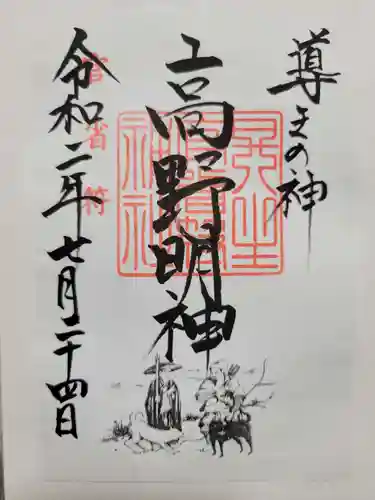 導き之の神
高野明神
令和二年七月二十四日
官省符